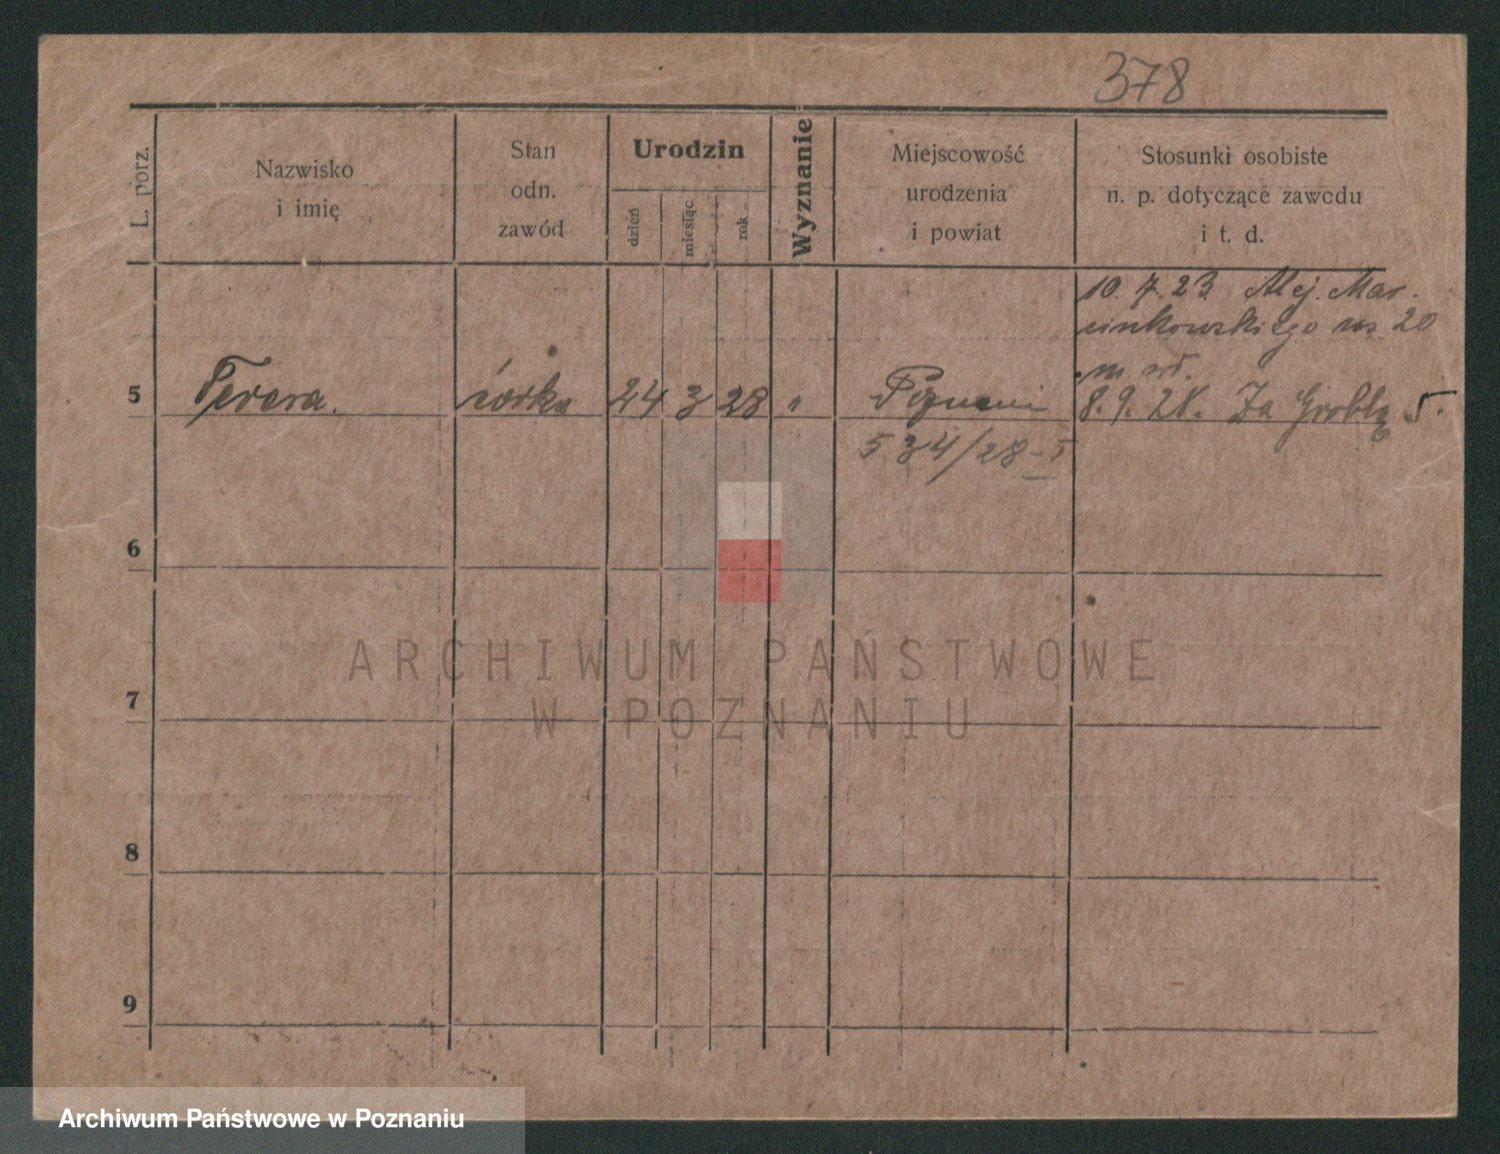 378
L. porz.
Nazwisko
i imię
Stan
odn.
zawód
Urodzin
dzień
miesiąc
rok
Wyznanie
Miejscowość
urodzenia
i powiat
Stosunki osobiste
n. p. dotyczące zawodu
i t. d.
10. 7. 23. Alej. Mar-
cinkowskiego 20
5 Teresa. córka 24 3 28 " Poznań 8. 9. 28. Za Groblą 5.
534/28
6
7
8
9
ARCHIWUM PAŃSTWOWE
W POZNANIU
Archiwum Państwowe w Poznaniu